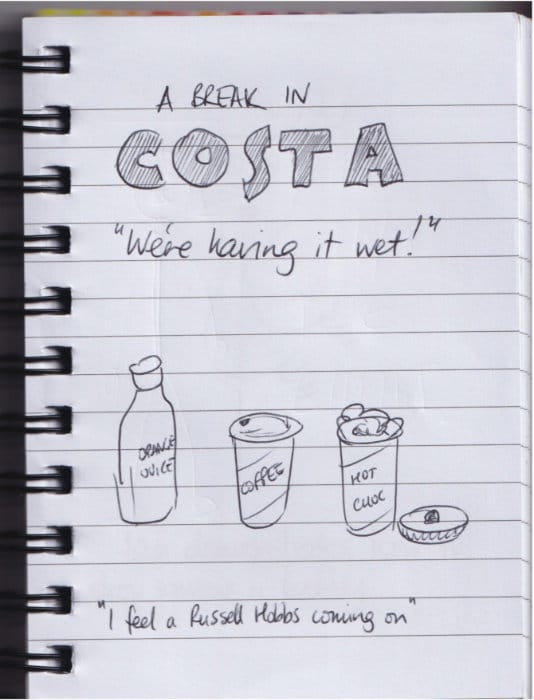 A BREAK IN
COSTA
"We're having it wet!"
ORANGE
JUICE
COFFEE
HOT
CHOC
"I feel a Russell Hobbs coming on"